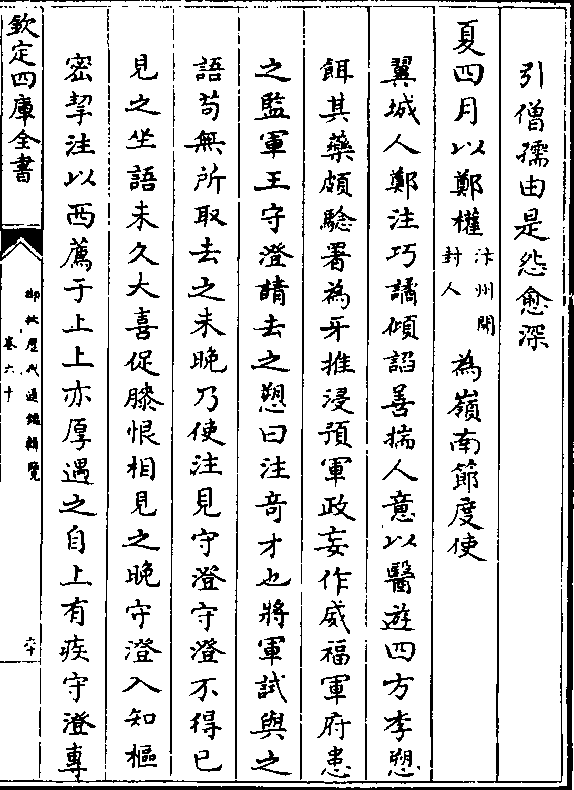 引僧孺由是怨愈深
夏四月以鄭權汴州開封人為嶺南節度使
翼城人鄭注巧譎傾諂善揣人意以醫遊四方李愬
餌其藥頗驗署為牙推浸預軍政妄作威福軍府患
之監軍王守澄請去之愬曰注竒才也將軍試與之
語苟無所取去之未晚乃使注見守澄守澄不得已
見之坐語未久大喜促膝恨相見之晚守澄入知樞
密挈注以西薦于上上亦厚遇之自上有疾守澄專
欽定四庫全書
御批歷代通鑑輯覽
卷六十
六十